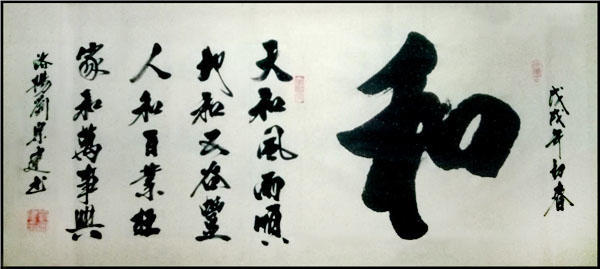 戊戌年初春
和
天和風雨順
地和五谷豐
人和百業旺
家和萬事興
洛陽劉建书